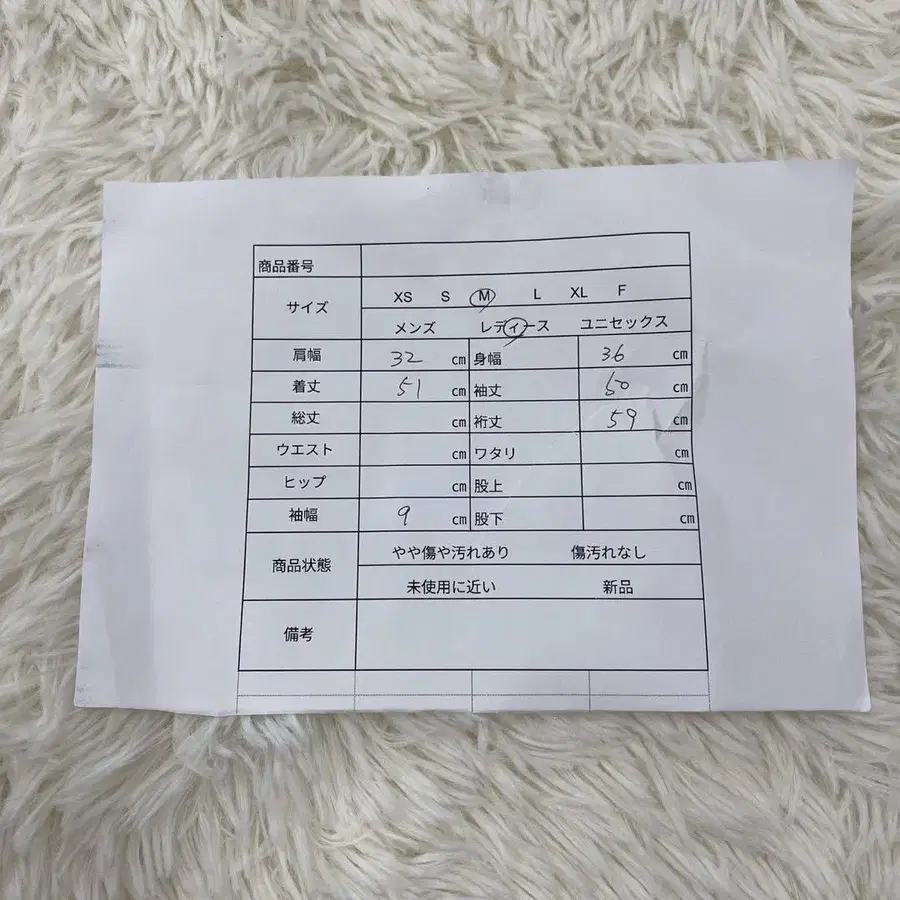 商品番号
サイズ XS S M L XL F
メンズ レディース ユニセックス
肩幅 32 cm 身幅 36 cm
着丈 51 cm 袖丈 50 cm
総丈 cm 裄丈 59 cm
ウエスト cm ワタリ cm
ヒップ cm 股上 cm
袖幅 9 cm 股下 cm
商品状態 やや傷や汚れあり 傷汚れなし
未使用に近い 新品
備考